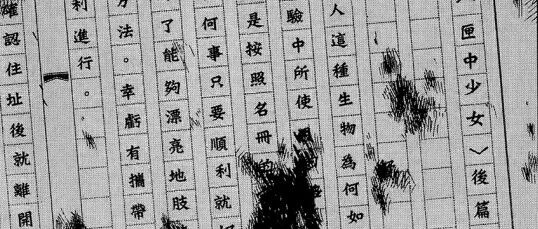 匣中少女﹀後篇
人這種生物為何如
驗中所使
是按照名冊的
何事只要順利就
了能夠漂亮地肢
方法。幸虧有攜帶
利進行。
確認住址後就離開